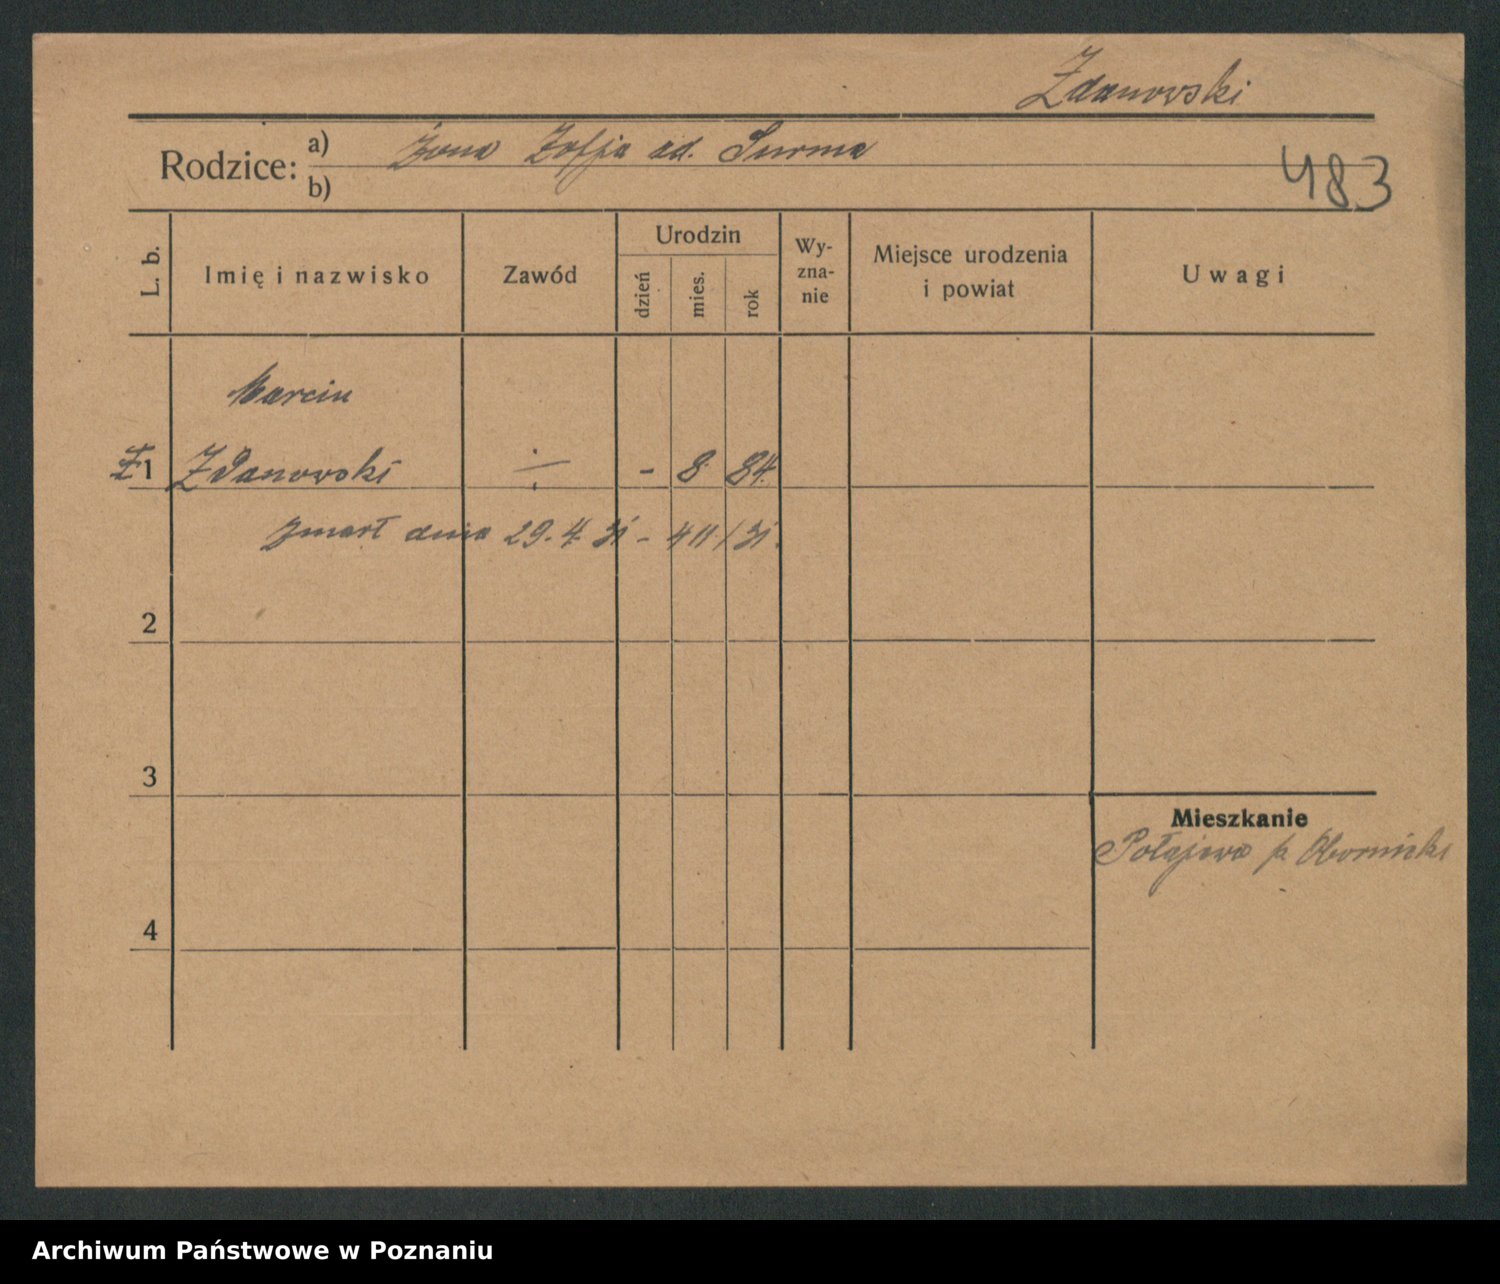 Zdanowski
Rodzice: a) Żona Zofja od. Surma
b)
483
L. b. Imię i nazwisko Zawód Urodzin dzień mies. rok Wy-zna-nie Miejsce urodzenia i powiat Uwagi
Marcin
1 Zdanowski ÷ - 8. 84.
zmarł dnia 29.4.31 - 411/31.
2
3
Mieszkanie
Połajewo p. Obornicki
4
Archiwum Państwowe w Poznaniu